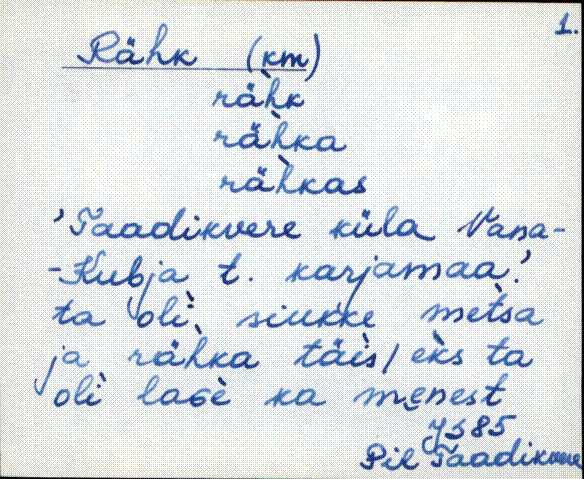 1.
Rähk (km)
räh̀k
räh̀ka
räh̀kas
'Taadikvere küla Vana-
-Kubja t. karjamaa.'
ta olì̬ siukke met̀sa
ja rähka täis/ eks ta
olì̬ lage ka menest
JS85
Pil Taadikvere